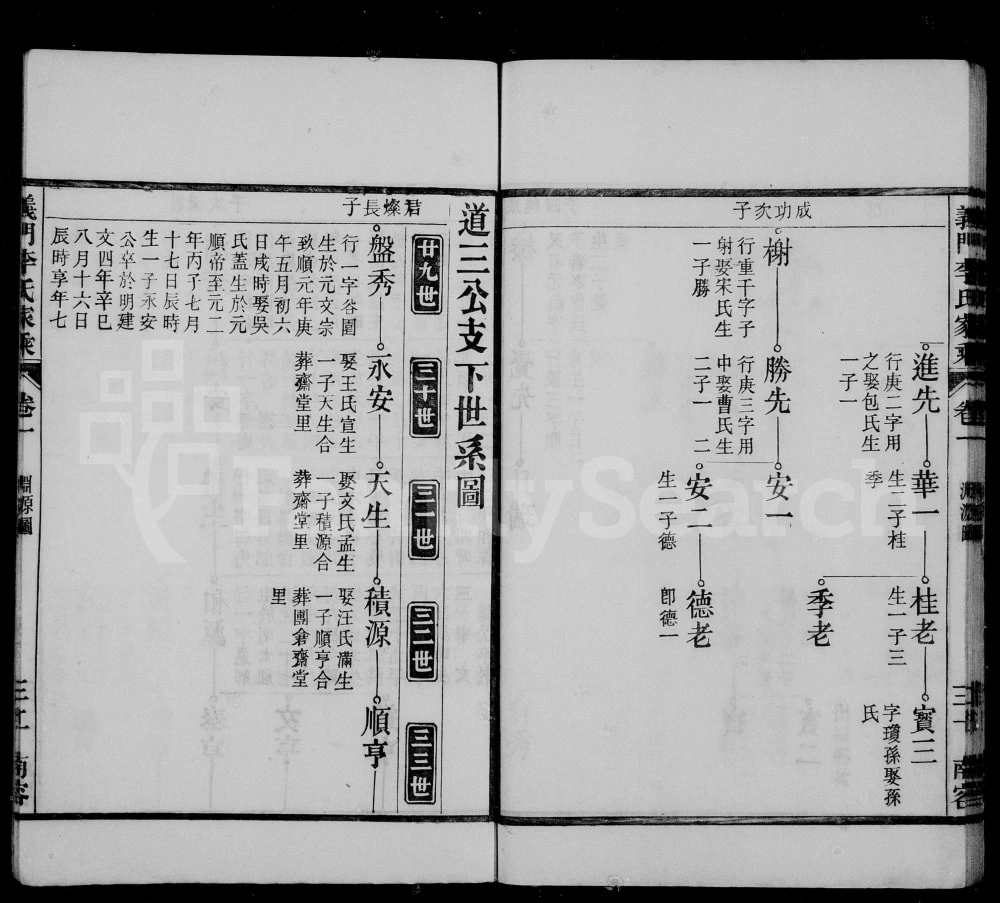 義門李氏家乘
卷一
淵源圖
三十
南容
進先
行庚二字用
之娶包氏生
一子一
華一
生二子桂
季
桂老
生一子三
寶三
字瓊孫娶孫
氏
季老
成功次子
榭
行重千字子
射娶宋氏生
一子勝
勝先
行庚三字用
申娶曹氏生
二子一 二
安一
安二
生一子德
德老
卽德一
道三公支下世系圖
廿九世
三十世
三一世
三二世
三三世
君燦長子
盤秀
行一字谷圓
生於元文宗
致順元年庚
午五月初六
日戌時娶吳
氏蓋生於元
順帝至元二
年丙子七月
十七日辰時
生一子永安
公卒於明建
文四年辛巳
八月十六日
辰時享年七
永安
娶王氏宣生
一子天生合
葬齋堂里
天生
娶文氏孟生
一子積源合
葬齋堂里
積源
娶汪氏滿生
一子順亨合
葬團倉齋堂
里
順亨
義門李氏家乘
卷一
淵源圖
南容
FamilySearch